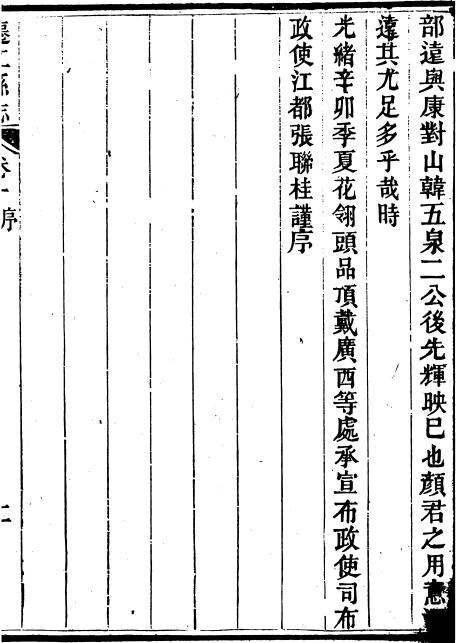 部遠與康對山韓五泉二公後先輝映已也顏君之用意
遠其尤足多乎哉時
光緒辛卯季夏花翎頭品頂戴廣西等處承宣布政使司布
政使江都張聯桂謹序
遷江縣志
卷一
序
二